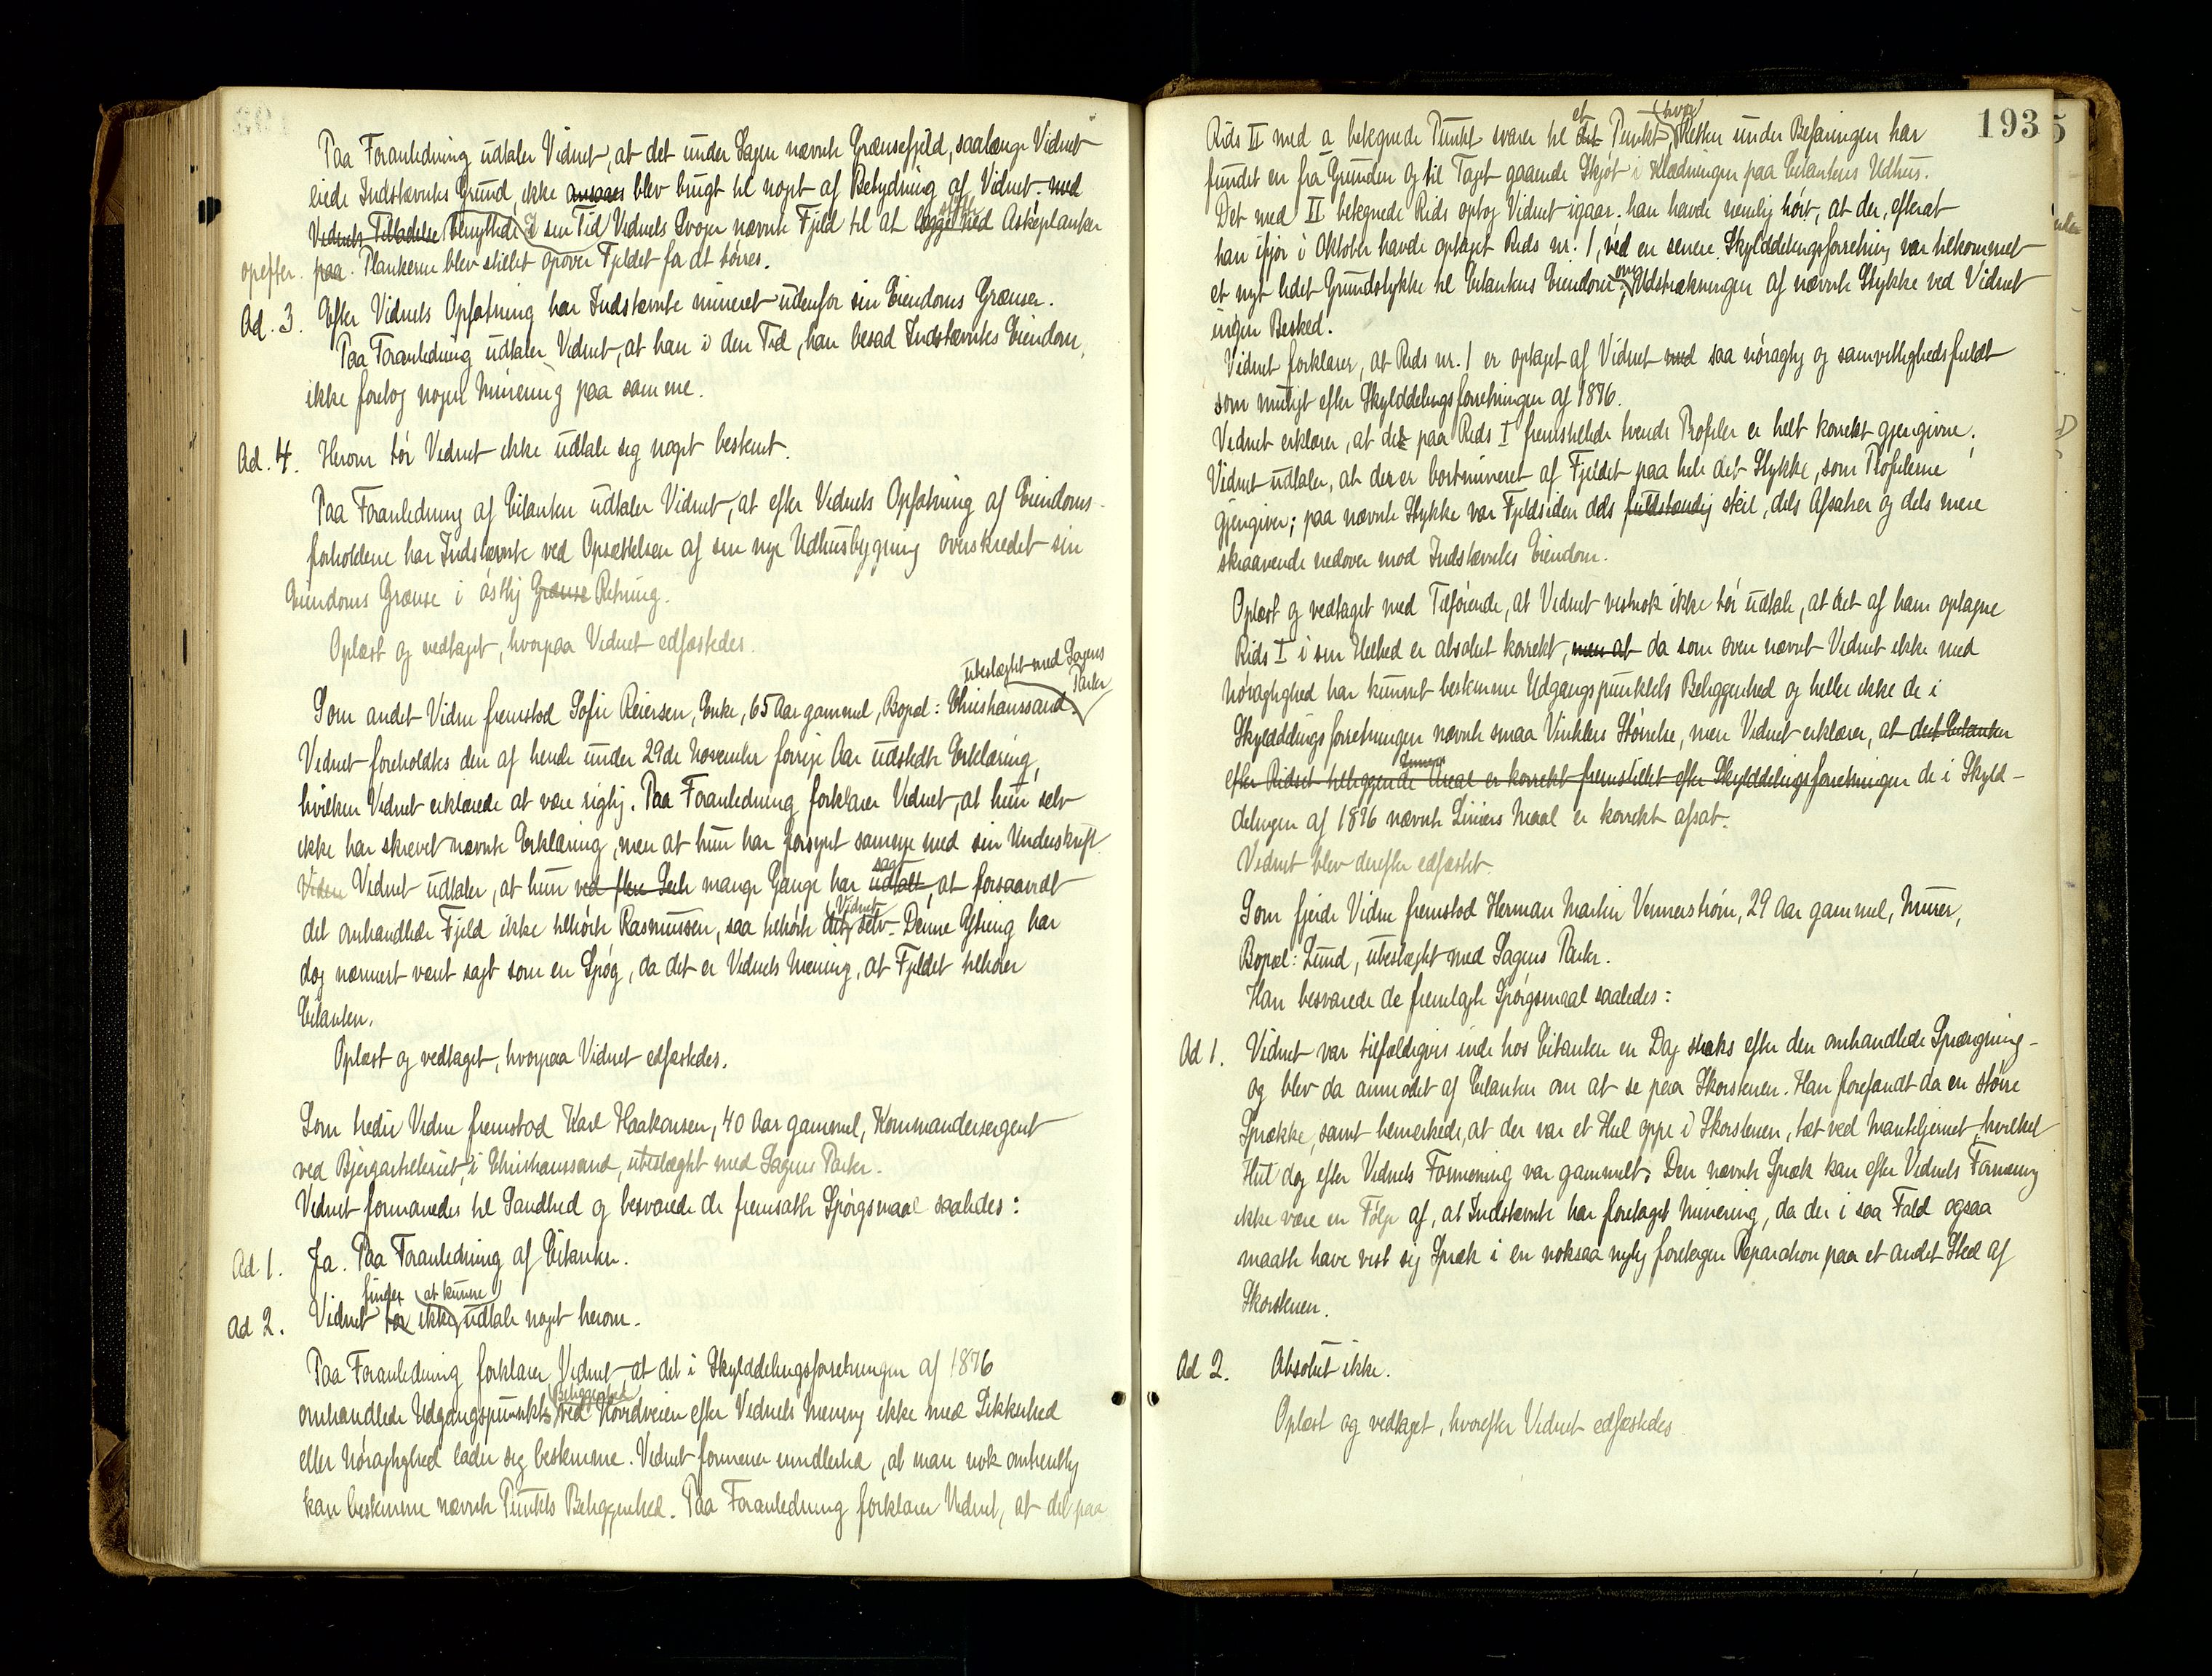 Paa Foranledning udtaler Vidnet, at det under Sagen nævnte Grænsefjeld, saalænge Vidnet
eiede Indstævntes Grund, ikke blev brugt til noget af Betydning af Vidnet. med
Vidnets Tilladelse benyttede I sin Tid Vidnets Svoger nævnte Fjeld til at stille Askeplanker
opefter. paa. Plankerne blev stillet opover Fjeldet for at tørres.
Ad. 3. Efter Vidnets Opfatning har Indstævnte mineret udenfor sin Eiendoms Grænser.
Paa Foranledning udtaler Vidnet, at han i den Tid, han besad Indstævntes Eiendom,
ikke foretog nogen Minering paa samme.
Ad. 4. Herom tør Vidnet ikke udtale sig noget bestemt.
Paa Foranledning af Citanten udtaler Vidnet, at efter Vidnets Opfatning af Eiendoms-
forholdene har Indstævnte ved Opsættelsen af sin nye Udhusbygning overskredet sin
Eiendoms Grænse i østlig Grænse Retning.
Oplæst og vedtaget, hvorpaa Vidnet edfæstedes.
ubeslægtet med Sagens
Parter
Som andet Vidne fremstod Sofie Reiersen, Enke, 65 Aar gammel, Bopæl: Christianssand.
Vidnet foreholdtes den af hende under 29de November forrige Aar udstedte Erklæring,
hvilken Vidnet erklærede at være rigtig. Paa Foranledning forklarer Vidnet, at hun selv
ikke har skrevet nævnte Erklæring, men at hun har forsynt samme med sin Underskrift.
Vidnet udtaler, at hun ved flere mange Gange har udtalt sagt, at forsaavidt
det omhandlede Fjeld ikke tilhørte Rasmussen, saa tilhørte det Vidnet selv. Denne Ytring har
dog nærmest været sagt som en Spøg, da det er Vidnets Mening, at Fjeldet tilhører
Citanten.
Oplæst og vedtaget, hvorpaa Vidnet edfæstedes.
Som tredie Vidne fremstod Karl Haakonsen, 40 Aar gammel, Kommandersergent
ved Bjergartilleriet, i Christianssand, ubeslægtet med Sagens Parter.
Vidnet formanedes til Sandhed og besvarede de fremsatte Spørgsmaal saaledes:
Ad 1. Ja. Paa Foranledning af Citanten.
finder at kunne
Ad 2. Vidnet tør ikke udtale noget herom.
Paa Foranledning forklarer Vidnet, at det i Skylddelingsforretningen af 1876
Beliggenhed
omhandlede Udgangspunkts ved Hovedveien efter Vidnets Mening ikke med Sikkerhed
eller Nøiagtighed lader sig bestemme. Vidnet formener imidlertid, at man nok omtrentlig
kan bestemme nævnte Punkts Beliggenhed. Paa Foranledning forklarer Vidnet, at det paa
193
et hvor
Rids II med a betegnede Punkt svarer til det Punkt, Retten under Befaringen har
fundet en fra Grunden og til Taget gaaende Skjøt i Klædningen paa Citantens Udhus.
Det med II betegnede Rids optog Vidnet igaar. han havde nemlig hørt, at der, efterat
han ifjor i Oktober havde optaget Rids nr. 1, ved en senere Skylddelingsforretning var tilkommet
et nyt lidet Grundstykke til Citantens Eiendom; om Udstrækningen af nævnte Stykke ved Vidnet
ingen Besked.
Vidnet forklarer, at Rids nr. 1 er optaget af Vidnet med saa nøiagtig og samvittighedsfuldt
som muligt efter Skylddelingsforretningen af 1876.
Vidnet erklærer, at de paa Rids I fremstillede tvende Profiler er helt korrekt gjengivne.
Vidnet udtaler, at der er bortmineret af Fjeldet paa hele det Stykke, som Profilerne
gjengiver; paa nævnte Stykke var Fjeldsiden dels fuldstændig steil, dels Afsatser og dels mere
skraanende nedover mod Indstævntes Eiendom.
Oplæst og vedtaget med Tilføiende, at Vidnet vistnok ikke tør udtale, at det af ham optagne
Rids I i sin Helhed er absolut korrekt, men at da som oven nævnt Vidnet ikke med
Nøiagtighed har kunnet bestemme Udgangspunktets Beliggenhed og heller ikke de i
Skylddelingsforretningen nævnte smaa Vinklers Størrelse, men Vidnet erklærer, at det Citanten
efter Ridset tilliggende Areal er korrekt fremstillet efter Skylddelingsforretningen de i Skyld-
delingen af 1876 nævnte Liniers Maal er korrekt afsat.
Vidnet blev derefter edfæstet.
Som fjerde Vidne fremstod Herman Martin Vennerstrøm, 29 Aar gammel, Murer,
Bopæl: Lund, ubeslægtet med Sagens Parter.
Han besvarede de fremlagte Spørgsmaal saaledes:
Ad 1. Vidnet var tilfældigvis inde hos Citanten en Dag straks efter den omhandlede Sprængning
og blev da anmodet af Citanten om at se paa Skorstenen. Han forefandt da en større
Sprække, samt bemerkede, at der var et Hul oppe i Skorstenen, tæt ved Manteljernet, hvilket
Hul dog efter Vidnets Formening var gammelt. Den nævnte Spræk kan efter Vidnets Formening
ikke være en Følge af, at Indstævnte har foretaget Minering, da der i saa Fald ogsaa
maatte have vist sig Spræk i en noksaa nylig foretagen Reparation paa et andet Sted af
Skorstenen.
Ad 2. Absolut ikke.
Oplæst og vedtaget, hvorefter Vidnet edfæstedes.